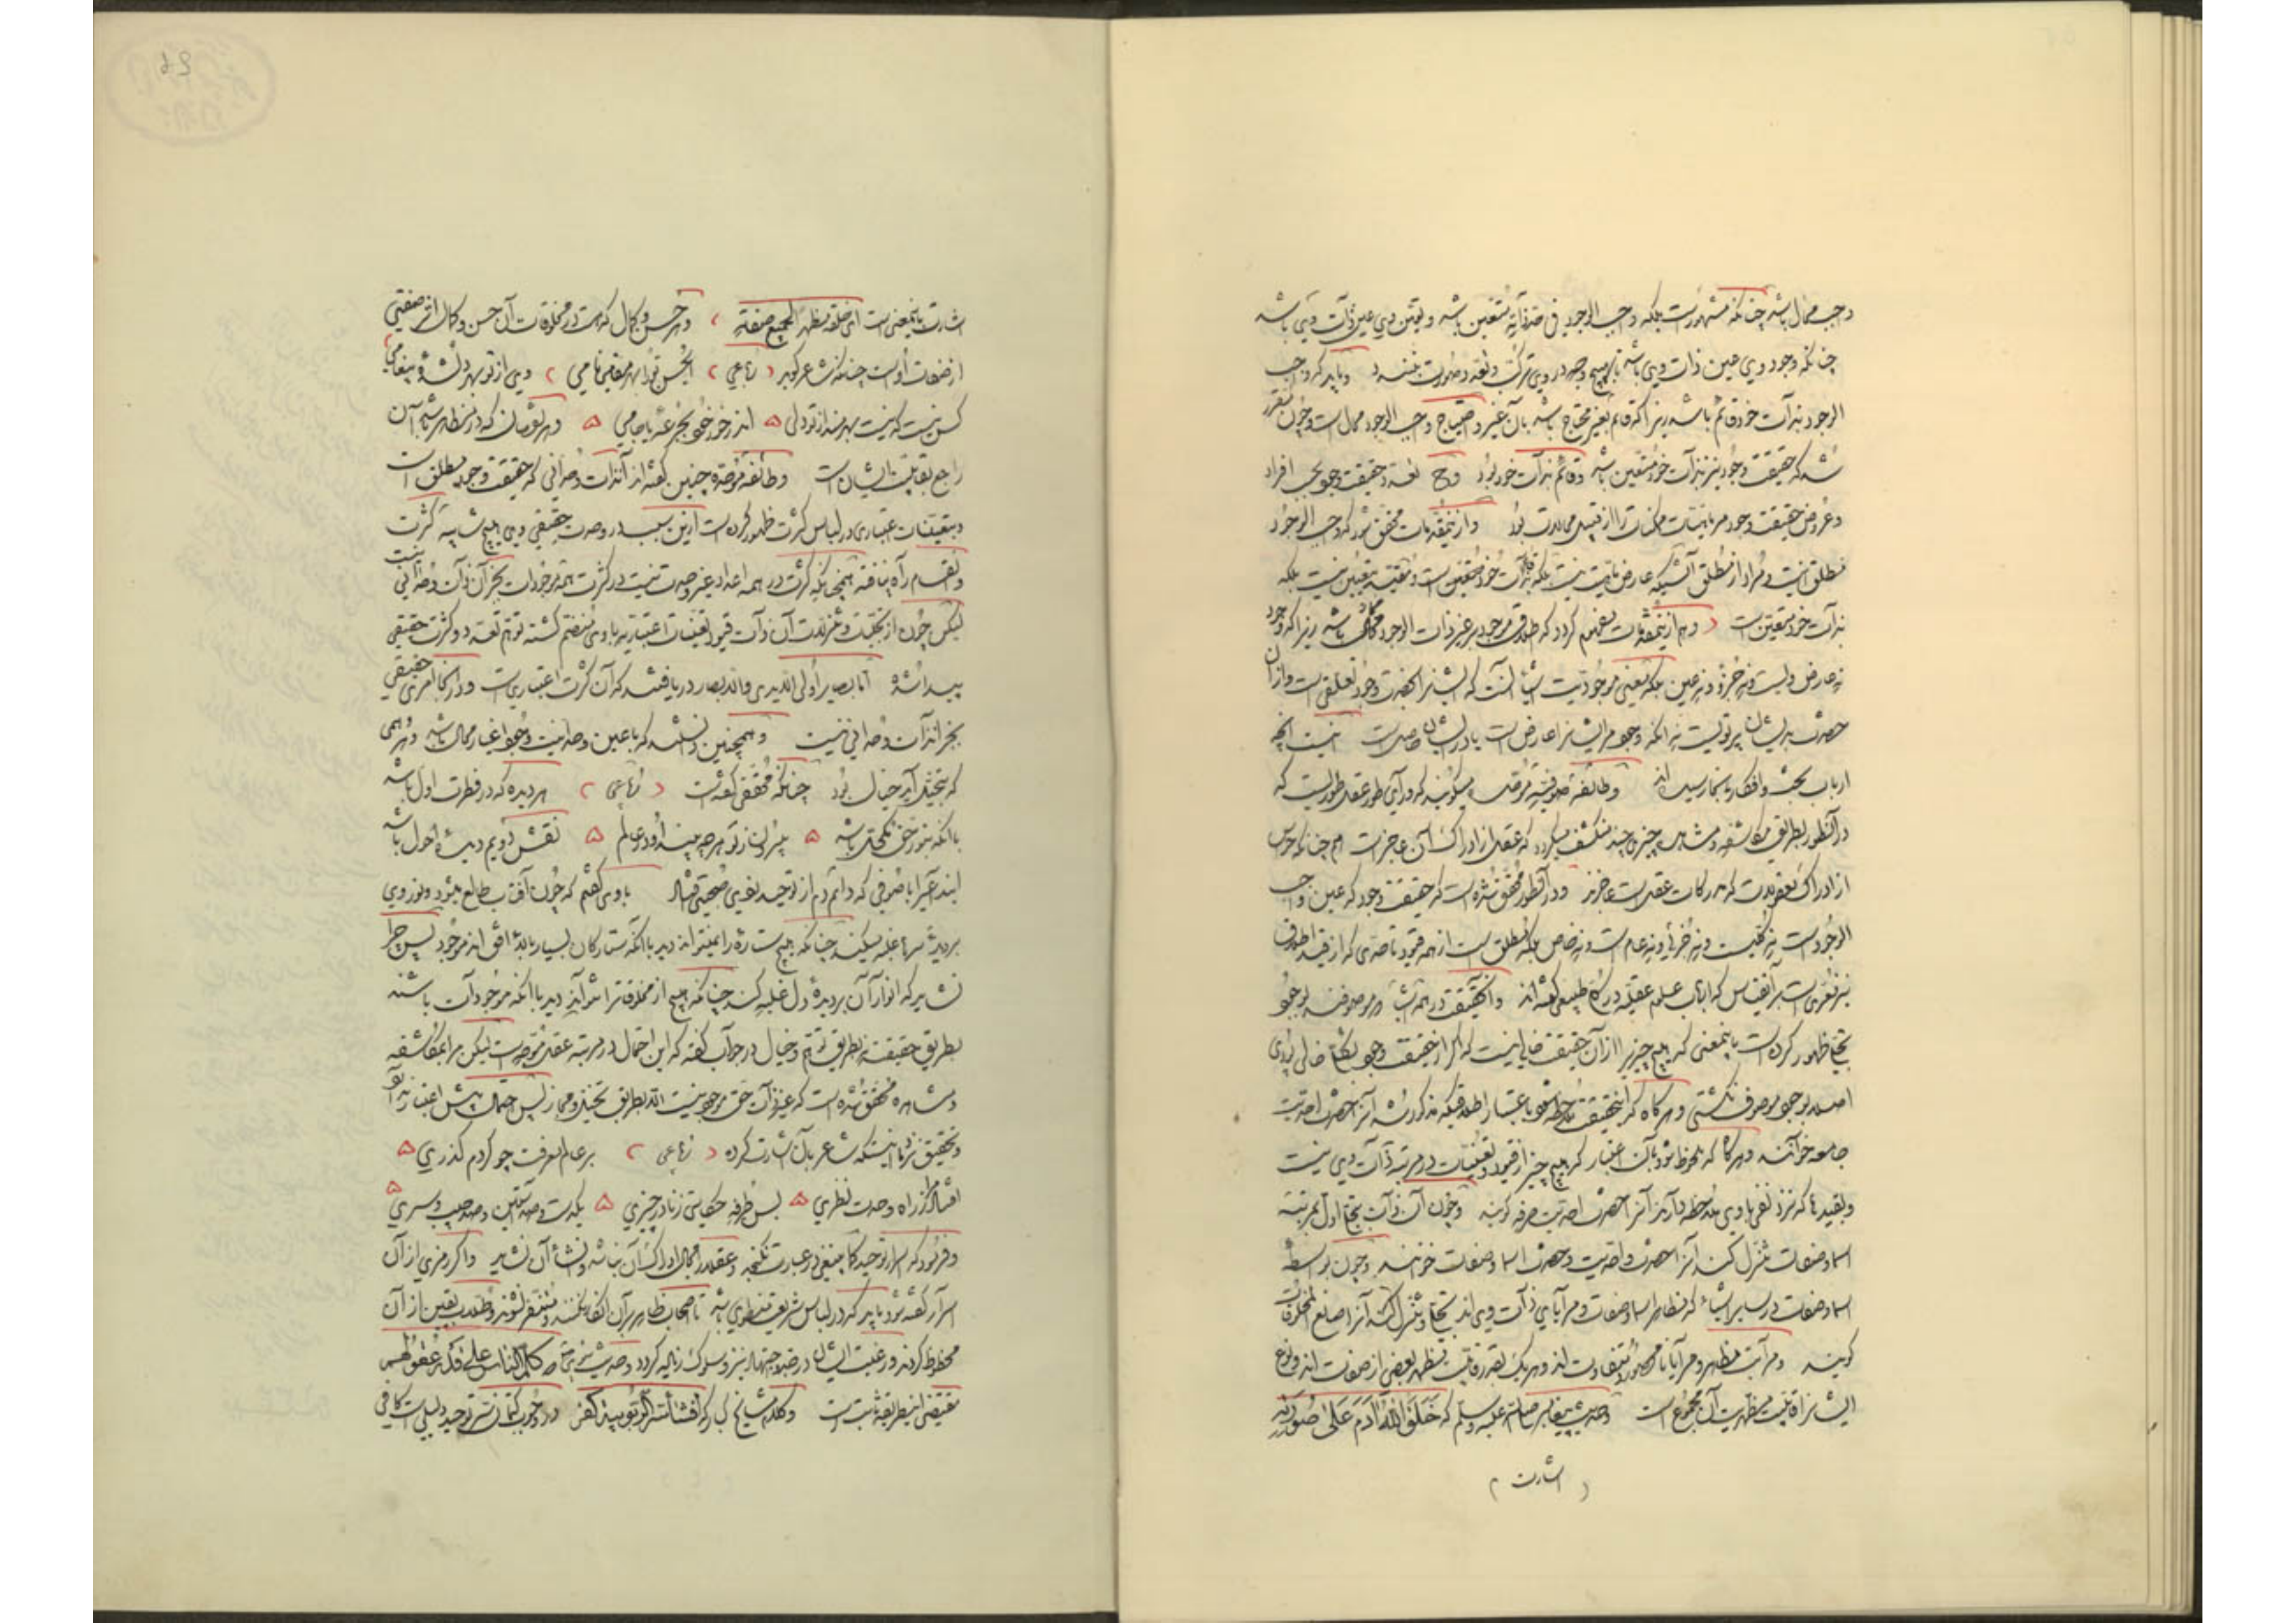 واجب محال باشد چنانکه مشهورست بلکه واجب الوجود فی حد ذاته متعین باشد و تعین وی عین ذات وی باشد
چنانکه وجود وی عین ذات وی باشد تا بهیچ وجه در وی ترکب و تعدد صورت نبندد و باید که واجب
الوجود بذات خود قائم باشد زیرا که قائم بغیر محتاج باشد بآن غیر و احتیاج واجب الوجود محالست و چون مقرر
شد که حقیقت وجود نیز بذات خود متعین باشد و قائم بذات خود بود وح تعدد حقیقت وجود بحسب افراد
و عروض حقیقت وجود مر ماهیات ممکنات را از قبیل محالات بود و ازین مقدمات محقق شود که واجب الوجود
مطلق است و مراد از مطلق آنست که عارض ماهیت نیست بلکه بذات خود متعین است و مقید بتعین نیست بلکه
بذات خود متعین است و هم ازین مقدمات مفهوم گردد که اطلاق موجود بر غیر ذات الوجود مجازی باشد زیرا که وجود
نه عارض ویست و نه جزو و نه عین بلکه معنی موجودیت اشیا آنست که ایشانرا بحضرت وجود تعلقی است و از آن
حضرت بر ایشان پرتویست نه آنکه وجود مر ایشانرا عارض است یا در ایشان حاصل است اینست آنچه
ارباب بحث و افکار بدینجا رسیده اند و طائفه صوفیه موحده میگویند که ورای طور عقل طوریست که
در آن طور بطریق مکاشفه و مشاهده چیزی چند منکشف میگردد که عقل از ادراک آن عاجزست همچنانکه حواس
از ادراک معقولات که مدرکات عقلست عاجزند و در آن طور محقق شده است که حقیقت وجود که عین واجب
الوجودست نه کلیست و نه جزئی و نه عام است و نه خاص بلکه مطلق است از همه قیود تا حدی که از قید اطلاق
نیز معرّی است بر آن قیاس که ارباب علوم عقلیه در کلی طبیعی گفته اند و آن حقیقت در همه اشیا که موصوفند بوجود
تجلی و ظهور کرده است باینمعنی که هیچ چیز از آن حقیقت خالی نیست که اگر از حقیقت وجود بکلی خالی بودی
اصلا بوجود موصوف نگشتی و هرگاه که این حقیقت ملاحظه شود باعتبار اطلاقیکه مذکور شد آنرا حضرت احدیت
جامعه خوانند و هرگاه که ملحوظ شود بآن اعتبار که هیچ چیز از قیود و تعینات در مرتبه ذات وی نیست
و بقیدها که نزد نفی با وی ملاحظه دارند آنرا حضرت احدیت صرفه گویند و چون آن ذات بتجلی اول بمرتبه
اسما و صفات تنزل کند آنرا حضرت واحدیت و حضرت اسما و صفات خوانند و چون بواسطه
اسما و صفات در سایر اشیاء که مظاهر اسما و صفات و مرایای ذات وی اند تجلی و تنزل کند آنرا صانع المخلوقات
گویند و مراتب مظاهر و مرایا نامحصور و متفاوت اند و هر یک بقدر قابلیت مظهر بعضی از صفات اند و نوع
انسانرا قابلیت مظهریت آن مجموع است و حدیث پیغامبر صلی الله علیه وسلم که خَلَقَ اللهُ آدَمَ عَلَی صُورَتِهِ
اشارت
اشارت باینمعنی است ای خلقه مظهرا لجمیع صفته و هر حسن و کمال که هست در مخلوقات آن حسن و کمال اثر صفتی
از صفات اوست چنانکه شاعر گوید رباعی ای حسن تو را بهر مقامی نامی وی از تو بهر دلشده پیغامی
کس نیست که نیست بهره مند از تو دلی اندر خور خود بجرعه یا جامی و هر نقصان که در مظاهر باشد آن
راجع بقابلیت ایشان است و طائفه موحده چنین گفته اند از آن ذات وحدانی که حقیقت وجود مطلق است
و بتعینات اعتباری در لباس کثرت ظهور کرده است ازین سبب در وحدت حقیقی وی هیچ شایبه کثرت
و انقسام راه نیافته همچنانکه کثرت در همه اعداد غیر وحدت نیست در کثرت همه موجودات بجز آن ذات وحدانی نیست
لیکن چون از تجلیات و تنزلات آن ذات قیود تعینات اعتباریه با وی منضم گشته توهم تعدد و کثرت حقیقی
پیدا شده اما بصایر اولی الایدی والابصار دریافتند که آن کثرت اعتباری است و در آنجا امری حقیقی
بجز آن ذات وحدانی نیست و همچنین دانستند که با عین وحدانیت وجود اغیار محال باشد و هر وهمی
که بتخیل آید خیال بود چنانکه محققی گفته است رباعی هر دیده که در فطرت اول باشد
با آنکه بنور حق مکحل باشد بیرون ز تو هر چه بیند او در عالم نقش دویم دیده احول باشد
این فقیر با صوفی که دائم دم از توحید نفی صحبتی افتاد با وی گفتم که چون آفتاب طالع میشود و نور وی
بر دیده ها غلبه میکند چنانکه هیچ ستاره را نمیتوانند دید با آنکه ستارکان بسیار بالای افق اند موجود پس چرا
نشاید که انوار آن بر دیده دل غلبه کند چنانکه هیچ از مخلوقات را نتوانند دید با آنکه موجودات باشند
بطریق حقیقت نه بطریق توهم و خیال در جواب گفت که این احتمال در مرتبه عقل متوجه است لیکن مرا بمکاشفه
و مشاهده محقق شده است که غیر ذات حق موجود نیست الا بطریق تخیل و مجاز پس احتمال پیش اعتبار ندارد
و تحقیق نزد ما اینست که شاعر بآن اشارت کرده رباعی بر عالم معرفت چو کردم گذری
افتاد مرا ز راه وحدت نظری بس طرفه حکایتی و نادر چیزی یکدست و صد آستین و صد جیب و سری
و فرمود که اسرار توحید کما ینبغی در عبارت نگنجد و عقل را مجال ادراک آن نباشد و افشاء آن نشاید و اگر رمزی از آن
اسرار گفته شود باید که در لباس شریعت منطوی باشد تا اصحاب ظاهر بر آن انکار نکنند و متنفر نشوند و طلاب یقین از آن
محظوظ گردند و رغبت ایشان در جد و اجتهاد و سیر و سلوک زیاده گردد و حدیث نیز كَلِّمِ النَّاسَ عَلَی قَدْرِ عُقُولِهِمْ
مقتضی این طریقه ثابت است و کلام مشایخ کبار که افشاء سر الربوبیة کفر در وجوب کتمان سر توحید دلیلی است کافی